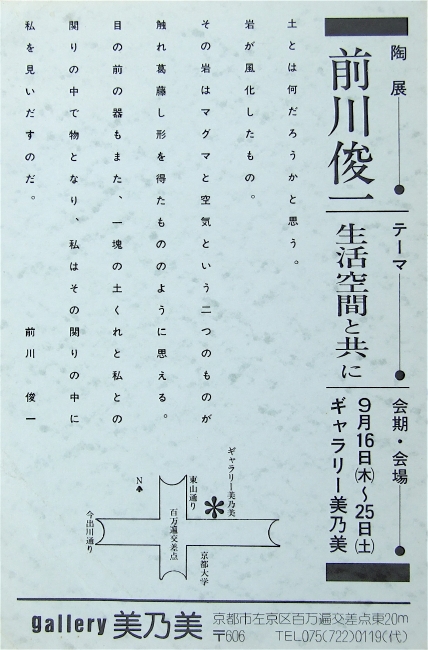 陶展
前川俊一
テーマ
生活空間と共に
会期・会場
9月16日(木)〜25日(土)
ギャラリー美乃美
土とは何だろうかと思う。
岩が風化したもの。
その岩はマグマと空気という二つのものが
触れ葛藤し形を得たもののように思える。
目の前の器もまた、一塊の土くれと私との
関りの中で物となり、私はその関りの中に
私を見いだすのだ。
前川俊一
ギャラリー美乃美
東山通り
N
百万遍交差点
京都大学
今出川通り
gallery 美乃美
京都市左京区百万遍交差点東20m
〒606 TEL075(722)0119(代)